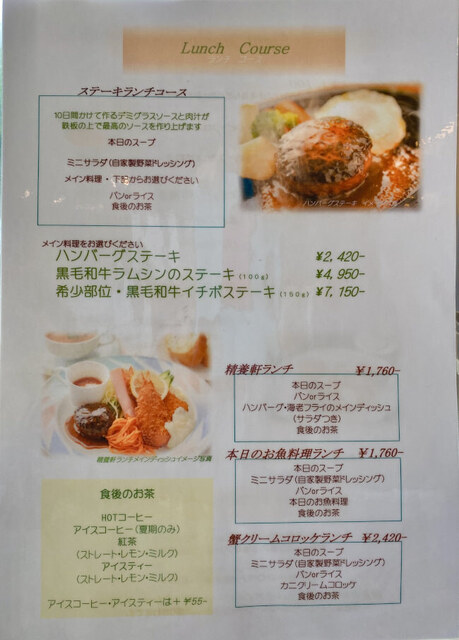 Lunch Course
ステーキランチコース
10日間かけて作るデミグラスソースと肉汁が
鉄板の上で最高のソースを作り上げます
本日のスープ
ミニサラダ（自家製野菜ドレッシング）
メイン料理・下記からお選びください
パンorライス
食後のお茶
ハンバーグステーキ
メイン料理をお選びください
ハンバーグステーキ ¥2,420-
黒毛和牛ラムシンのステーキ（100g） ¥4,950-
希少部位・黒毛和牛イチボステーキ（150g） ¥7,150-
精養軒ランチメインディッシュイメージ写真
精養軒ランチ ¥1,760-
本日のスープ
パンorライス
ハンバーグ・海老フライのメインディッシュ
（サラダつき）
食後のお茶
本日のお魚料理ランチ ¥1,760-
本日のスープ
ミニサラダ（自家製野菜ドレッシング）
パンorライス
本日のお魚料理
食後のお茶
蟹クリームコロッケランチ ¥2,420-
本日のスープ
ミニサラダ（自家製野菜ドレッシング）
パンorライス
カニクリームコロッケ
食後のお茶
食後のお茶
HOTコーヒー
アイスコーヒー（夏期のみ）
紅茶
（ストレート・レモン・ミルク）
アイスティー
（ストレート・レモン・ミルク）
アイスコーヒー・アイスティーは＋¥55-